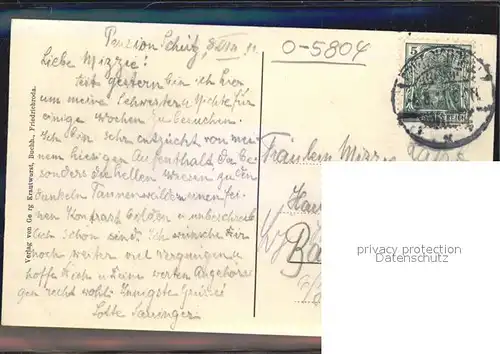 Pension Schütz, 8. 11.
Liebe Mizzie!
Seit gestern bin ich hier
um meine Schwester u. Nichte für
einige Wochen zu besuchen.
Ich bin sehr entzückt von mei-
nem hiesigen Aufenthalt. Da be-
sonders die hellen Wiesen zu den
dunkeln Tannenwäldern einen fei-
nen Kontrast bilden u. unbeschreib-
lich schön sind. Ich wünsche Dir
noch weiter viel Vergnügen u.
hoffe Dich u. Deine werten Angehöri-
gen recht wohl. Innigste Grüsse
Lotte
Verlag von Georg Krautwurst, Buchh., Friedrichroda.
0-5804
5
Fräulein Mizzie
privacy protection
Datenschutz